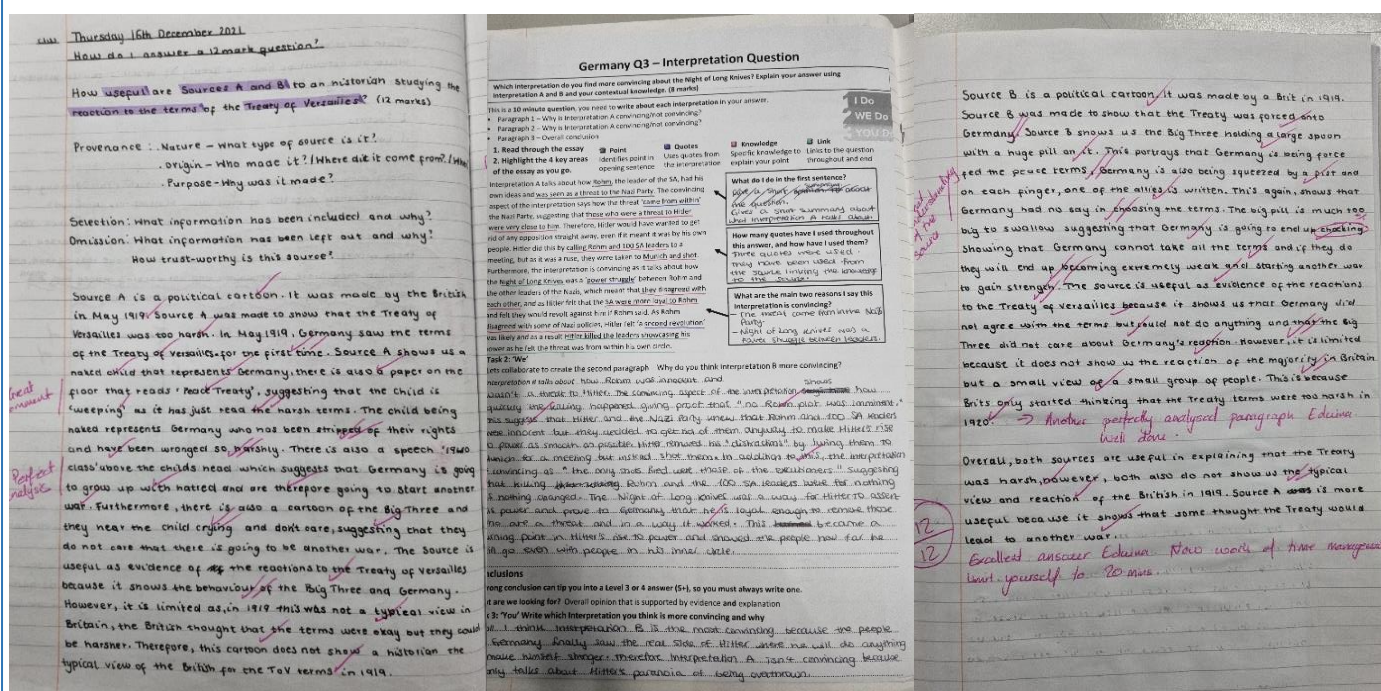 Thursday 16th December 2021
How do I answer a 12 mark question?
How useful are Sources A and B to an historian studying the
reaction to the terms of the Treaty of Versailles? (12 marks)
Provenance : . Nature - What type of source is it?
. Origin - Who made it? / Where did it come from? /
. Purpose - Why was it made?
Selection: What information has been included and why?
Omission: What information has been left out and why?
How trust-worthy is this source?
Source A is a political cartoon. It was made by the British
in May 1919. Source A was made to show that the Treaty of
Versailles was too harsh. In May 1919, Germany saw the terms
of the Treaty of Versailles for the first time. Source A shows us a
naked child that represents Germany, there is also a paper on the
floor that reads 'Peace Treaty', suggesting that the child is
'weeping' as it has just read the harsh terms. The child being
naked represents Germany who has been stripped of their rights
and have been wronged so harshly. There is also a speech '1940
class' above the childs head which suggests that Germany is going
to grow up with hatred and are therefore going to start another
war. Furthermore, there is also a cartoon of the Big Three and
they hear the child crying and don't care, suggesting that they
do not care that there is going to be another war. The source is
useful as evidence of the reactions to the Treaty of Versailles
because it shows the behaviour of the Big Three and Germany.
However, it is limited as, in 1919 this was not a typical view in
Britain, the British thought that the terms were okay but they could
be harsher. Therefore, this cartoon does not show a historian the
typical view of the British for the ToV terms in 1919.
Perfect
Germany Q3 – Interpretation Question
Which interpretation do you find more convincing about the Night of Long Knives? Explain your answer using
Interpretation A and B and your contextual knowledge. (8 marks)
This is a 10 minute question, you need to write about each interpretation in your answer.
• Paragraph 1 – Why is Interpretation A convincing/not convincing?
• Paragraph 2 – Why is Interpretation A convincing/not convincing?
• Paragraph 3 – Overall conclusion
I Do
WE Do
YOU D
1. Read through the essay
2. Highlight the 4 key areas
of the essay as you go.
Point
Identifies point in
opening sentence
Quotes
Uses quotes from
the interpretation
Knowledge
Specific knowledge to
explain your point
Link
Links to the question
throughout and end
Interpretation A talks about how Rohm, the leader of the SA, had his
own ideas and was seen as a threat to the Nazi Party. The convincing
aspect of the interpretation says how the threat 'came from within'
the Nazi Party, suggesting that those who were a threat to Hitler
were very close to him. Therefore, Hitler would have wanted to get
rid of any opposition straight away, even if it meant it was by his own
people. Hitler did this by calling Rohm and 100 SA leaders to a
meeting, but as it was a ruse, they were taken to Munich and shot.
Furthermore, the interpretation is convincing as it talks about how
the Night of Long Knives was a 'power struggle' between Rohm and
the other leaders of the Nazis, which meant that they disagreed with
each other, and as Hitler felt that the SA were more loyal to Rohm
and felt they would revolt against him if Rohm said. As Rohm
disagreed with some of Nazi policies, Hitler felt 'a second revolution'
was likely and as a result Hitler killed the leaders showcasing his
power as he felt the threat was from within his own circle.
What do I do in the first sentence?
Gives a short summary about
what Interpretation A talks about.
How many quotes have I used throughout
this answer, and how have I used them?
Three quotes were used
They have been used from
the source linking the knowledge
to the source.
What are the main two reasons I say this
Interpretation is convincing?
- The threat came from in the Nazi
Party.
- Night of Long Knives was a
Power struggle between leaders.
Task 2: 'We'
Lets collaborate to create the second paragraph Why do you think interpretation B is more convincing?
Interpretation B talks about how Rohm was innocent and
wasn't a threat to Hitler. The convincing aspect of the interpretation shows how
quickly the killing happened giving proof that "no Rohm plot was imminent."
this suggests that Hitler and the Nazi Party knew that Rohm and 100 SA leaders
were innocent but they decided to get rid of them anyway to make Hitler's rise
to power as smooth as possible. Hitler removed his "distractions" by luring them to
Munich for a meeting but instead shot them. In addition to this, the interpretation
convincing as "the only shots fired were those of the executioners" suggesting
that killing Rohm and the 100 SA leaders were for nothing
nothing changed. The Night of Long Knives was a way for Hitler to assert
power and prove to Germany that he is loyal enough to remove those
who are a threat and in a way it worked. This became a
turning point in Hitler's rise to power and showed the people how far he
go even with people in his inner circle.
nclusions
rong conclusion can tip you into a Level 3 or 4 answer (5+), so you must always write one.
t are we looking for? Overall opinion that is supported by evidence and explanation
k 3: 'You' Write which Interpretation you think is more convincing and why
I think Interpretation B is the most convincing because the people
Germany finally saw the real side of Hitler where he will do anything
make himself stronger. Therefore Interpretation A isn't convincing because
only talks about Hitler's paranoia of being overthrown.
Source B is a political cartoon. It was made by a Brit in 1919.
Source B was made to show that the Treaty was forced onto
Germany. Source B shows us the Big Three holding a large spoon
with a huge pill on it. This portrays that Germany is being force
fed the peace terms, Germany is also being squeezed by a fist and
on each finger, one of the allies is written. This again, shows that
Germany had no say in choosing the terms. The big pill is much too
big to swallow suggesting that Germany is going to end up choking
showing that Germany cannot take all the terms and if they do
they will end up becoming extremely weak and starting another war
to gain strength. The source is useful as evidence of the reactions
to the Treaty of Versailles because it shows us that Germany did
not agree with the terms but could not do anything and that the Big
Three did not care about Germany's reaction. However, it is limited
because it does not show us the reaction of the majority in Britain
but a small view of a small group of people. This is because
Brits only started thinking that the Treaty terms were too harsh in
1920. → Another perfectly analysed paragraph Edwina.
Well done.
Overall, both sources are useful in explaining that the Treaty
was harsh, however, both also do not show us the typical
view and reaction of the British in 1919. Source A is more
useful because it shows that some thought the Treaty would
lead to another war.
12
12
Excellent answer Edwina. Now work of time management
limit yourself to 20 mins.